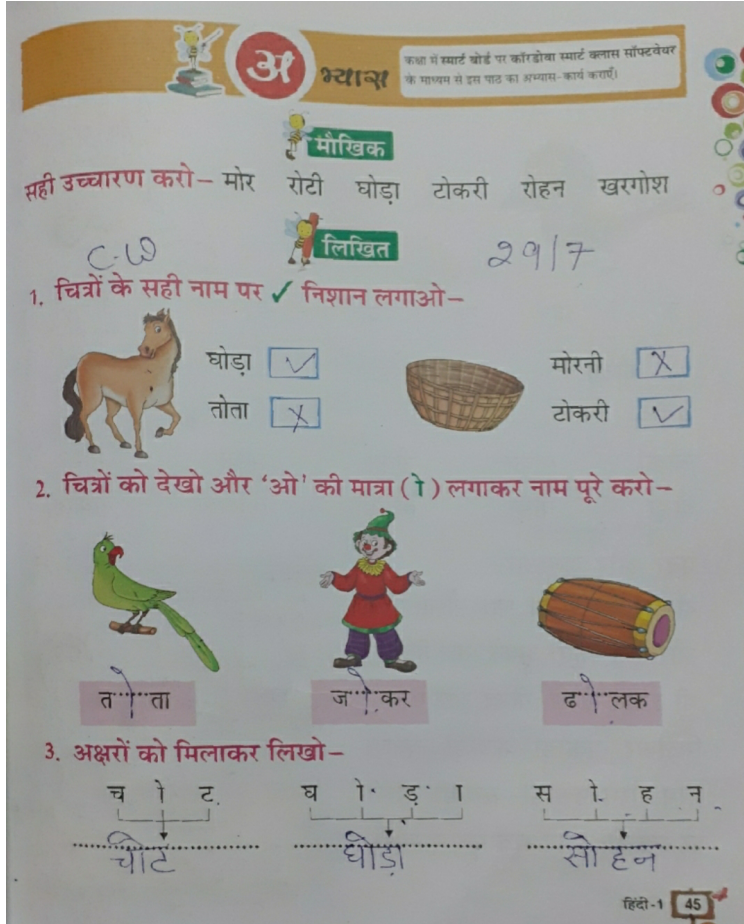 अभ्यास
कक्षा में स्मार्ट बोर्ड पर कॉरडोवा स्मार्ट क्लास सॉफ्टवेयर
के माध्यम से इस पाठ का अभ्यास-कार्य कराएँ।
मौखिक
सही उच्चारण करो– मोर रोटी घोड़ा टोकरी रोहन खरगोश
लिखित
C.W 29/7
1. चित्रों के सही नाम पर ✓ निशान लगाओ–
घोड़ा ✓ मोरनी ×
तोता × टोकरी ✓
2. चित्रों को देखो और 'ओ' की मात्रा (ो) लगाकर नाम पूरे करो–
त ो ता ज ो कर ढ ो लक
3. अक्षरों को मिलाकर लिखो–
च ो ट घ ो ड़ ा स ो ह न
चोट घोड़ा सोहन
हिंदी-1 45